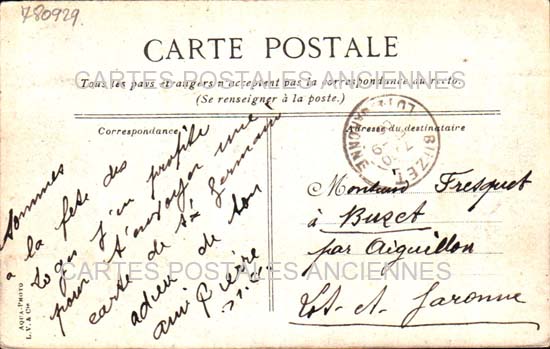 780929.
CARTE POSTALE
Tous les pays étrangers n'acceptent pas la correspondance au recto.
(Se renseigner à la poste.)
CARTES POSTALES ANCIENNES
Correspondance
Sommes
a la fête des
Loges J'en profite
pour t'envoyer une
carte de St Germain
adieu de ton
ami Pierre
Adresse du destinataire
BUZET
LOT-ET-GARONNE
Monsieur Fresquet
à Buzet
par Aiguillon
Lot-et-Garonne
CARTES POSTALES ANCIENNES
AQUA-PHOTO
L.V. & Cie